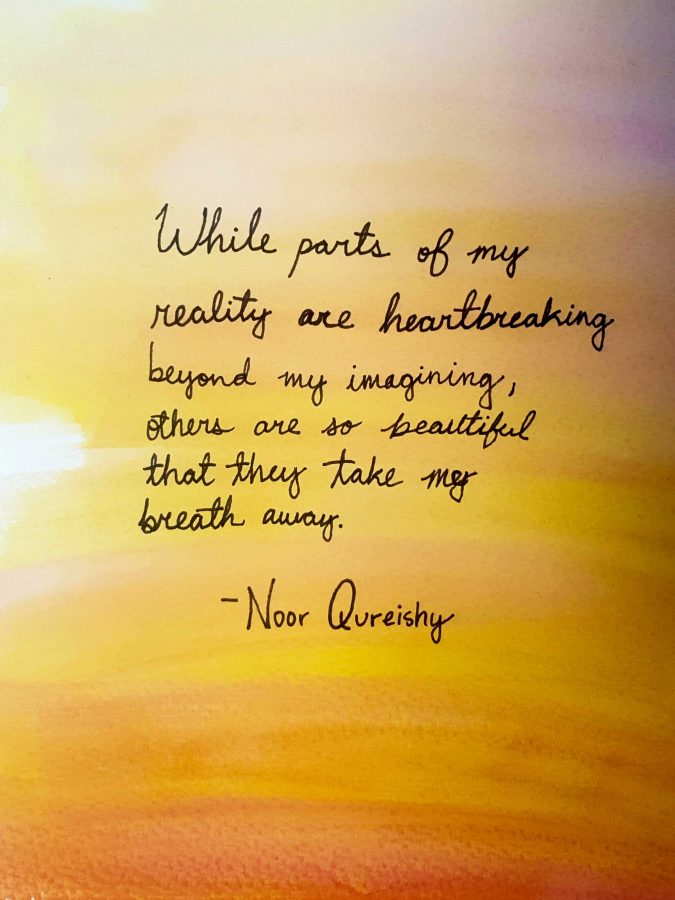 While parts of my
reality are heartbreaking
beyond my imagining,
others are so beautiful
that they take my
breath away.
-Noor Qureishy